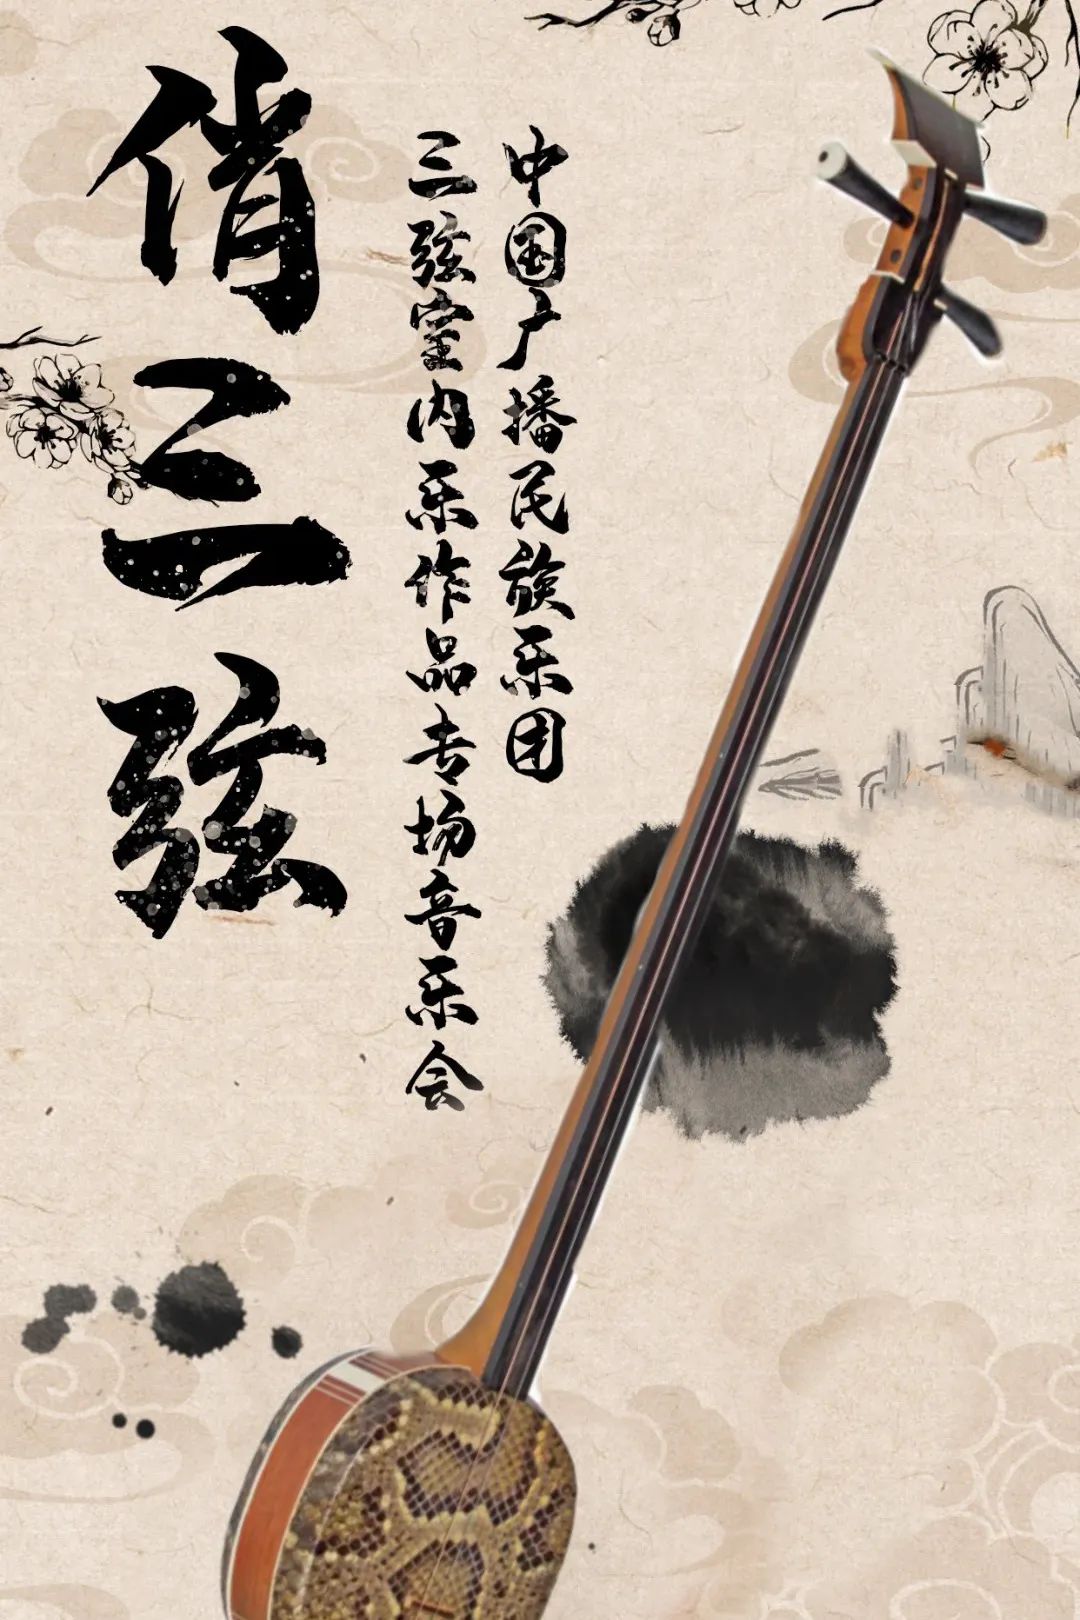 俏三弦
中国广播民族乐团
三弦室内乐作品专场音乐会